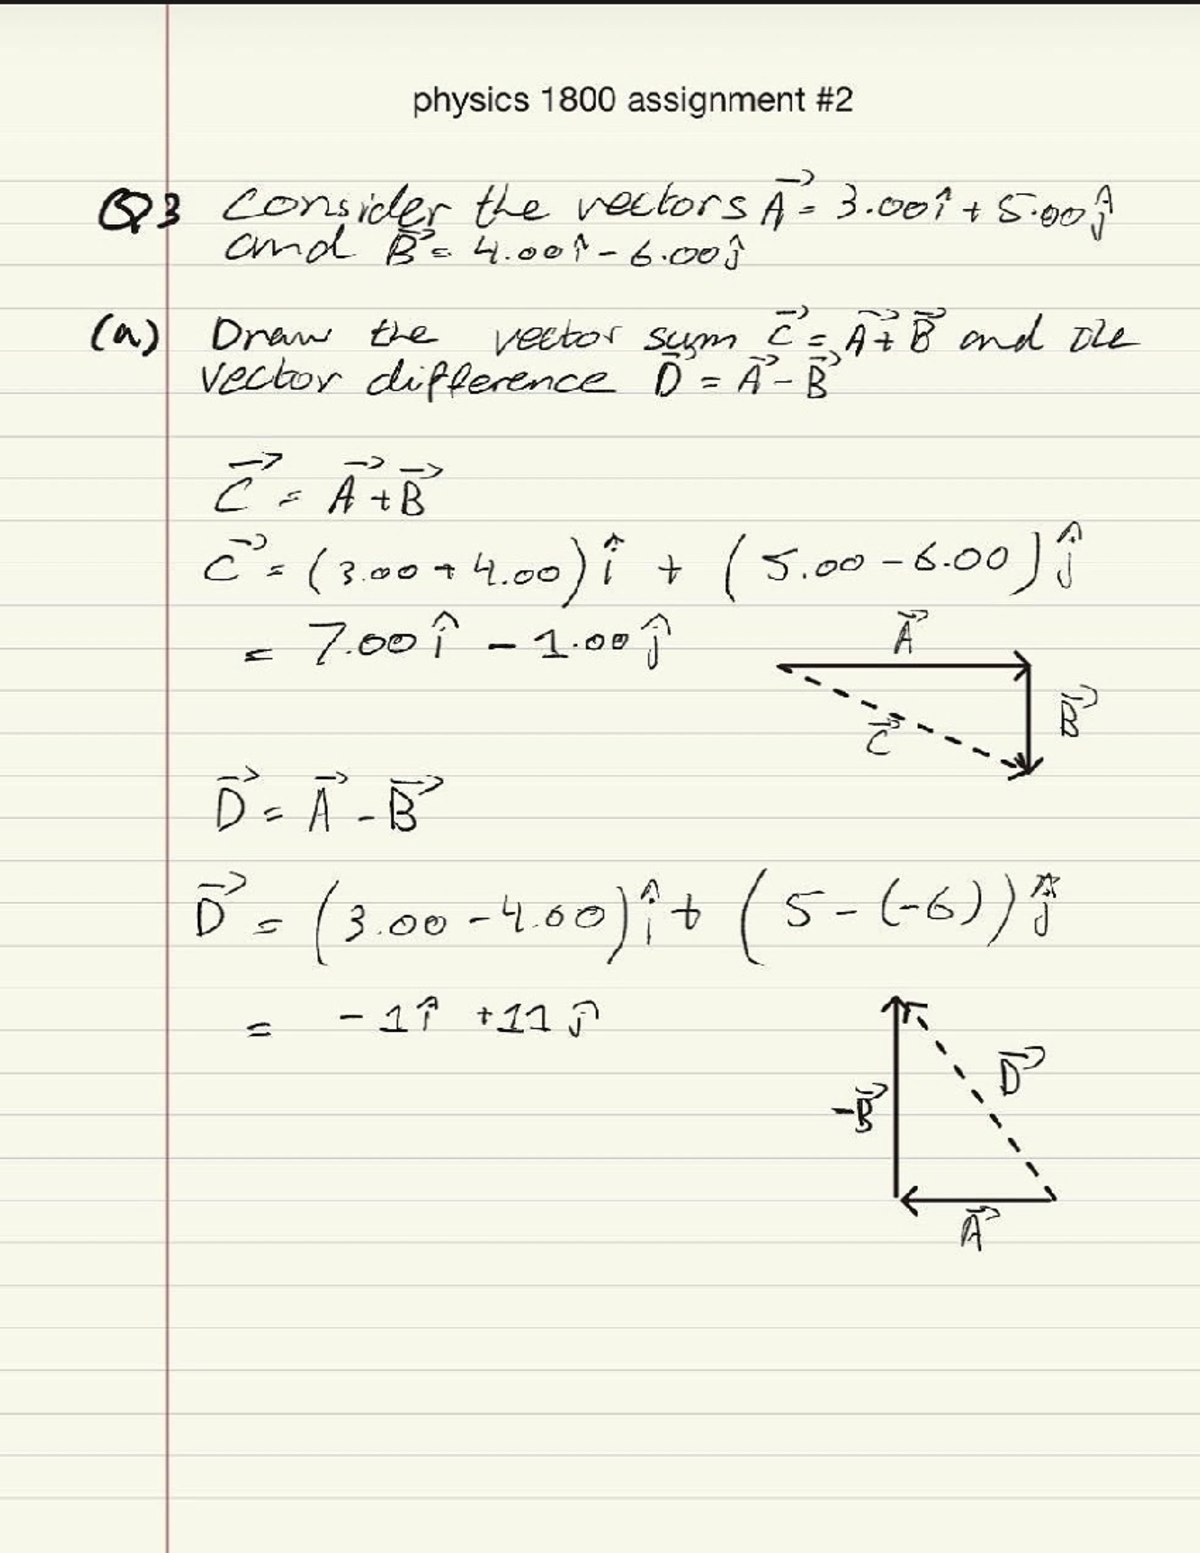 physics 1800 assignment #2
Q3 Consider the vectors A⃗ = 3.00î + 5.00ĵ
and B⃗ = 4.00î - 6.00ĵ
(a) Draw the vector sum C⃗ = A⃗ + B⃗ and the
vector difference D⃗ = A⃗ - B⃗
C⃗ = A⃗ + B⃗
C⃗ = (3.00 + 4.00) î + (5.00 - 6.00) ĵ
= 7.00 î - 1.00 ĵ
A⃗
B⃗
C⃗
D⃗ = A⃗ - B⃗
D⃗ = (3.00 - 4.00) î + (5 - (-6)) ĵ
= - 1 î + 11 ĵ
D⃗
-B⃗
A⃗